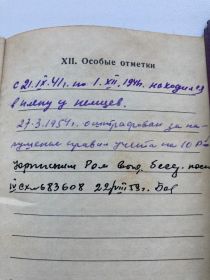 XII. Особые отметки
с 21.IX.41 г. по 1.XII.1946 находился
в плену у немцев.
27.3.1954 г. оштрафован за на-
рушение правил учета на 10 р
выд.
683608 22/VIII 59 г.